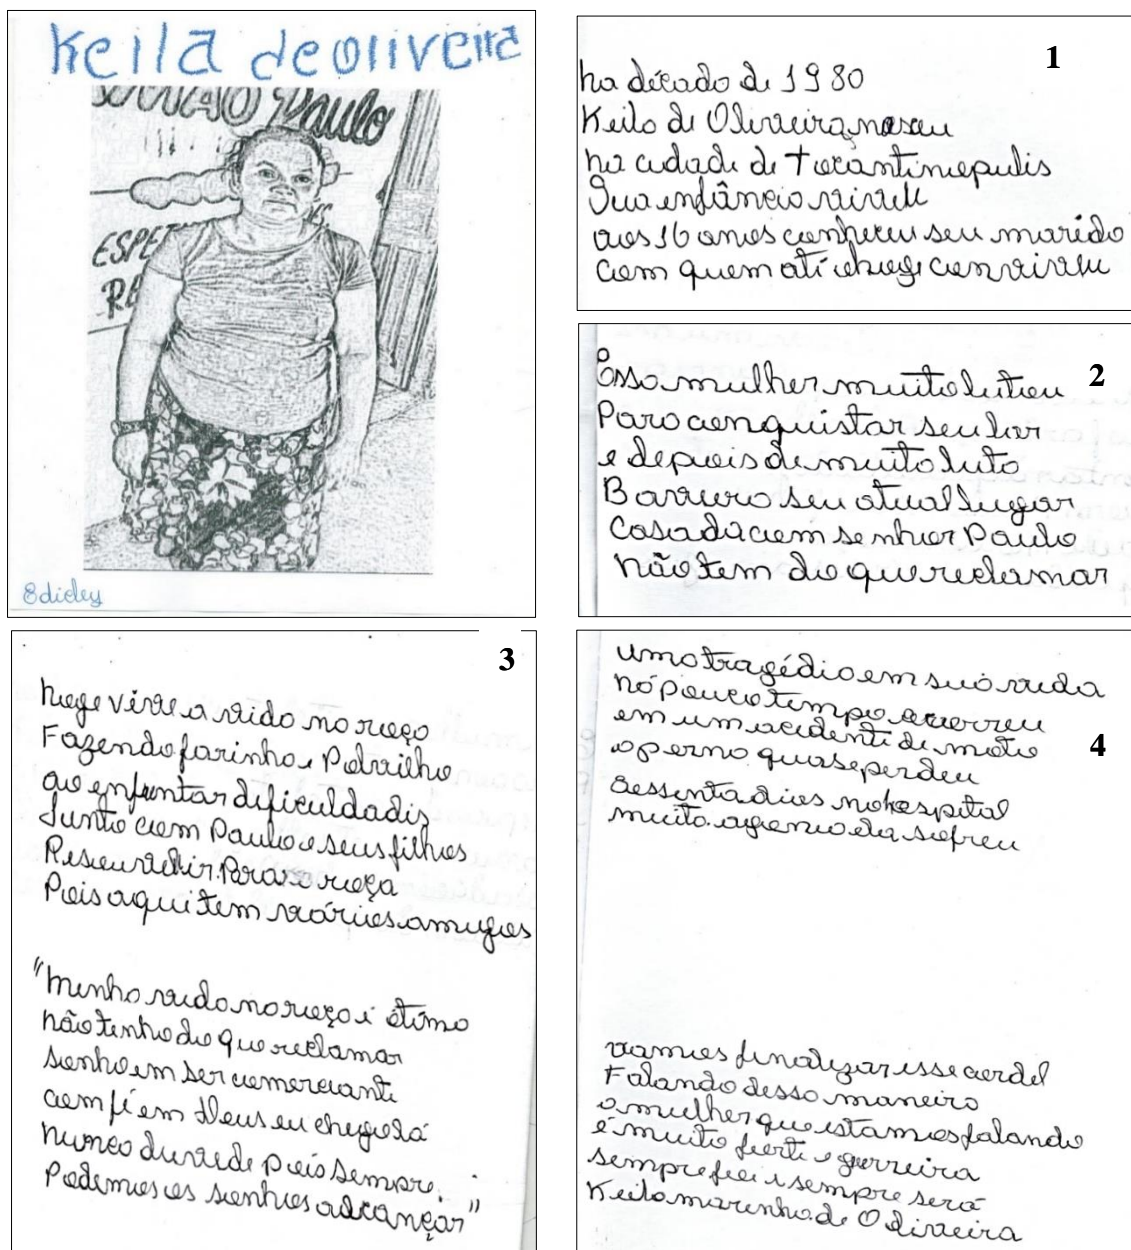 Keila de oliveira
SÃO Paulo
ESPET
RE
Edicley
1
na década de 1980
Keila de Oliveira nasceu
na cidade de Tocantinopulis
Sua enfância viveu
aos 16 anos conheceu seu marido
com quem até choge conviveu
2
Essa mulher muito lutou
Para conquistar seu lar
e depois de muita luta
Barreiro seu atual lugar
Casada com senhor Paulo
não tem do que reclamar
3
hoge vive a vida na roça
Fazendo farinha e Polvilho
ao enfrntar dificuldadis
Junto com Paulo e seus filhos
Resouveu hir Para a roça
Pois aqui tem vários amigos
"minha vida na roça é ótima
não tenho do que reclamar
sonho em ser comerciante
com fé em Deus eu chego lá
nunca duvide pois sempre
Podemos os sonhos alcançar"
4
uma tragédia em sua vida
há pouco tempo ocorreu
em um acidenti di moto
a perna quase perdeu
sessenta dias no hospital
muita agonia ela sofreu
vamos finalizar esse cordel
Falando dessa maneira
a mulher que estamos falando
é muito forte e gerreira
sempre foi e sempre será
Keila marinho de Oliveira